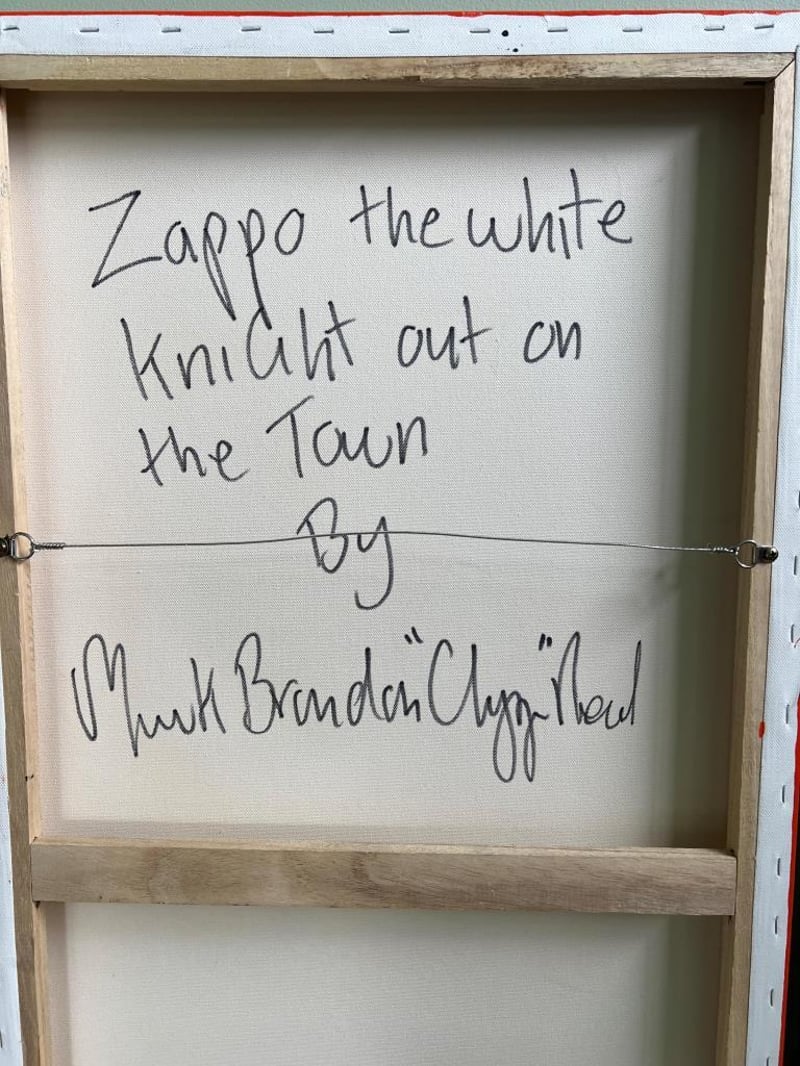 Zappo the white
Knight out on
the Town
By
Mark Brandon "Chopper" Read